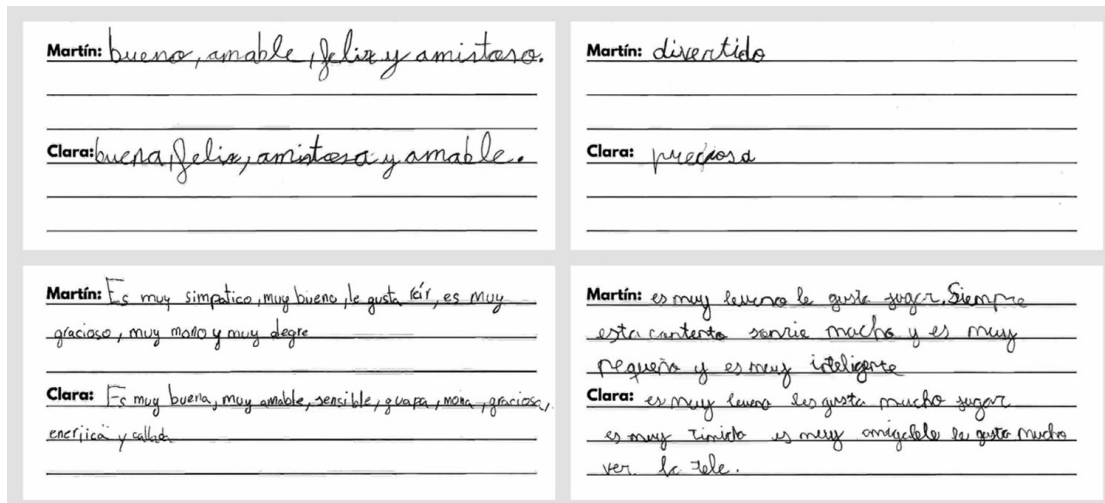 Martín: bueno, amable, feliz y amistoso.
Clara: buena, feliz, amistosa y amable.
Martín: divertido
Clara: preciosa
Martín: Es muy simpatico, muy bueno, le gusta reír, es muy
gracioso, muy mono y muy alegre
Clara: Es muy buena, muy amable, sensible, guapa, mona, graciosa,
enerjica y callada
Martín: es muy bueno le gusta jugar. Siempre
esta contento sonrie mucho y es muy
pequeño y es muy inteligente
Clara: es muy buena les gusta mucho jugar
es muy timida es muy amigable le gusta mucho
ver la tele.